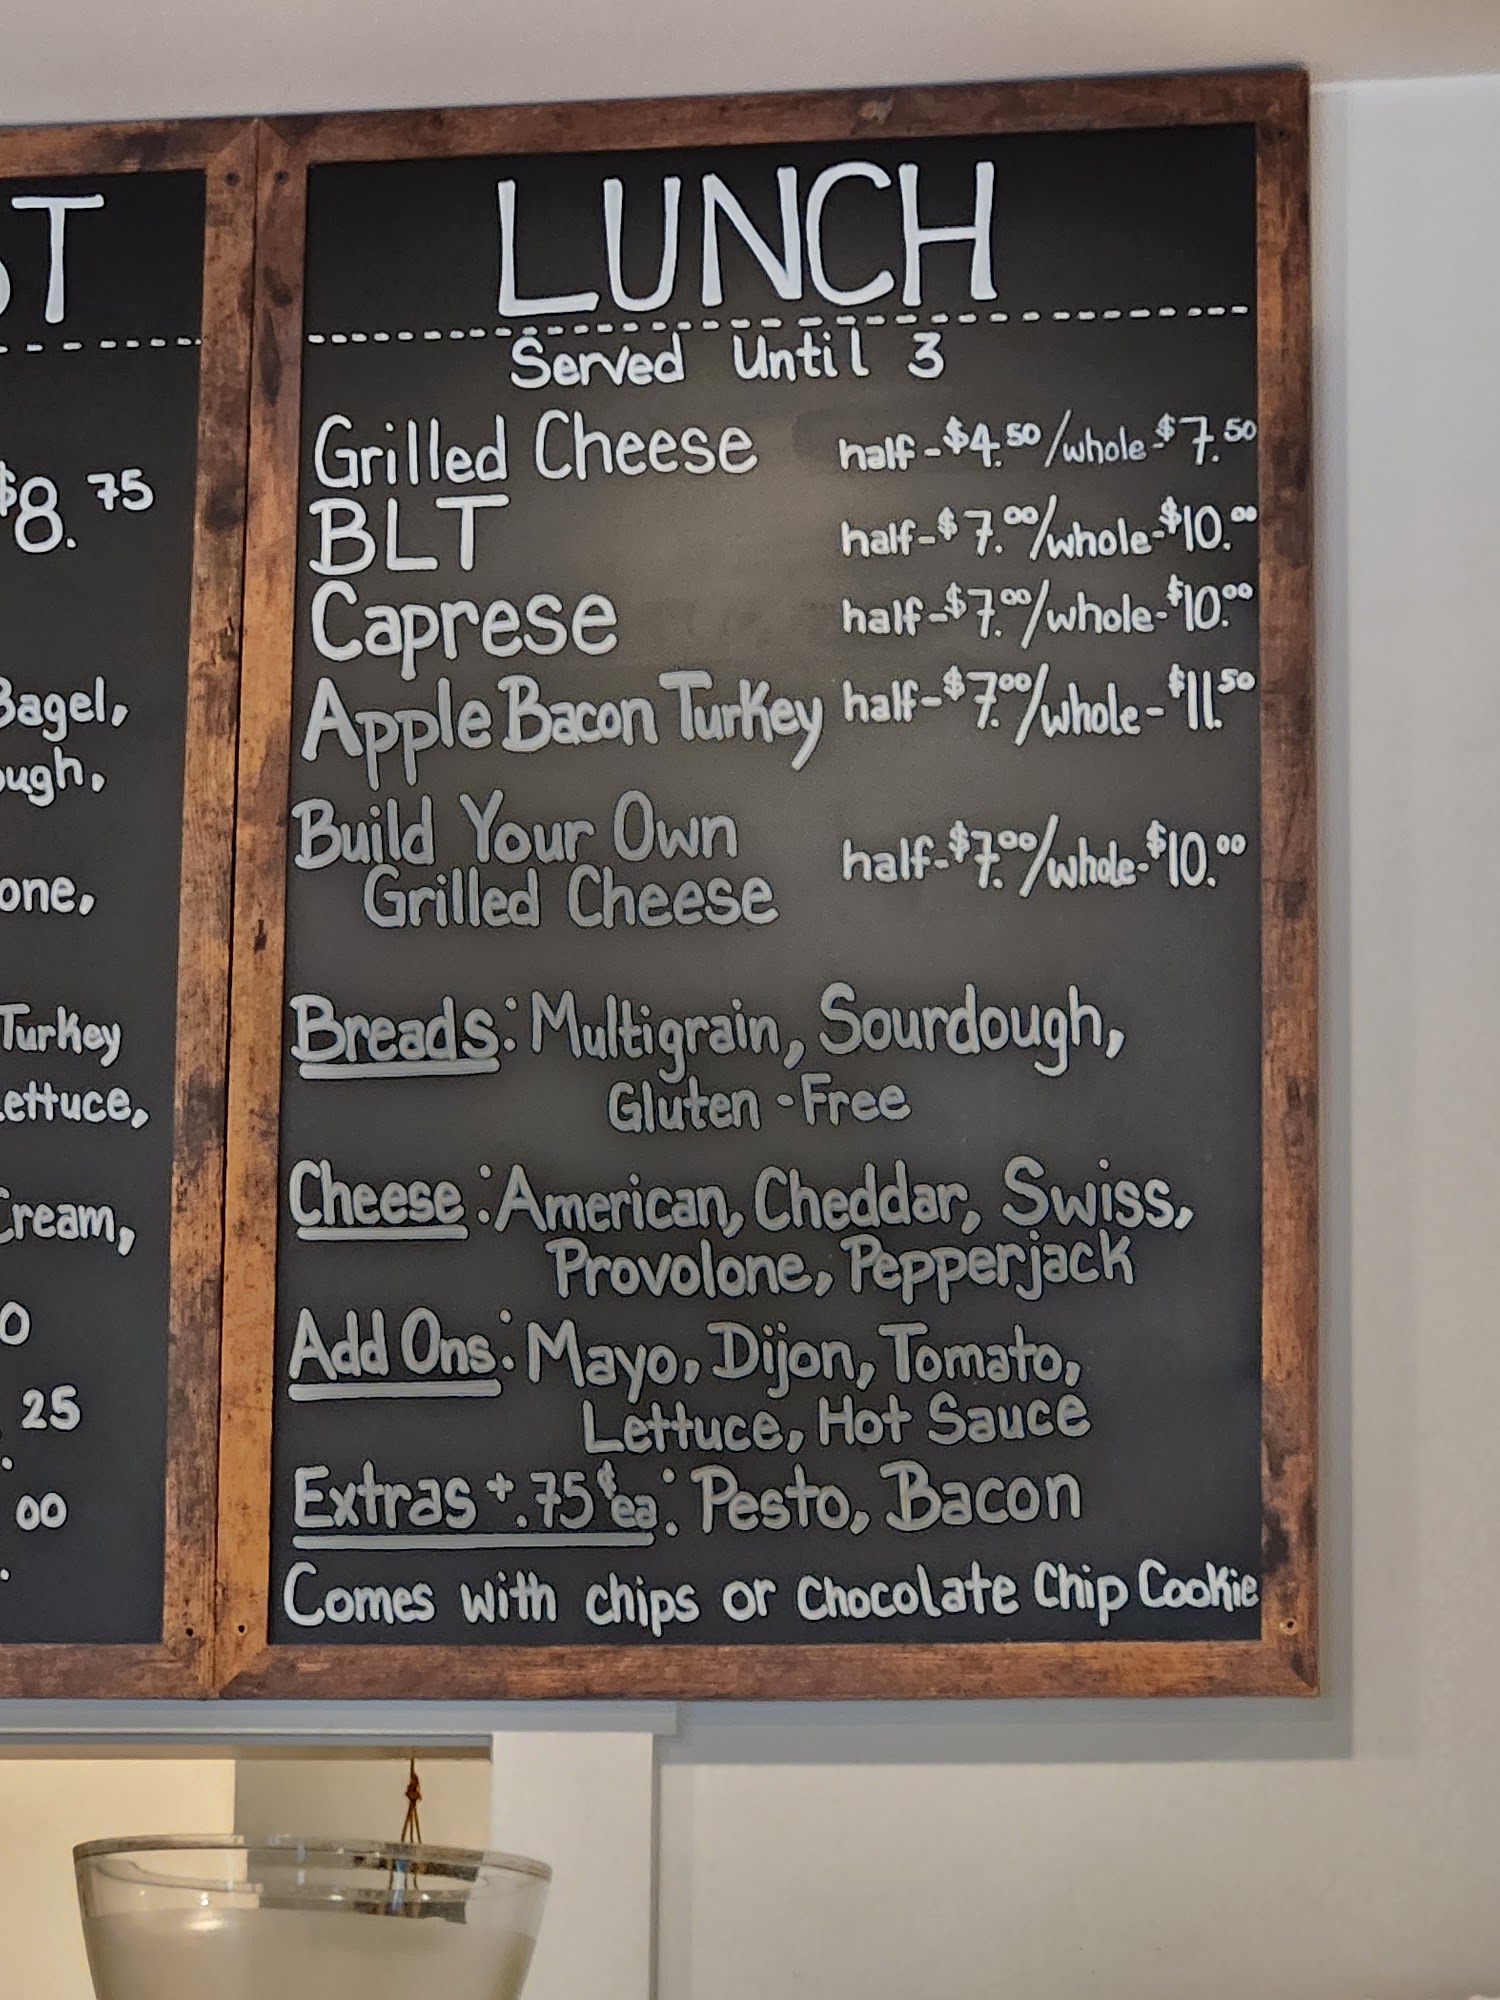 ST
$8.75
Bagel,
ough,
one,
Turkey
Lettuce,
Cream,
0
25
.00
LUNCH
Served Until 3
Grilled Cheese half-$4.50/whole-$7.50
BLT half-$7.00/whole-$10.00
Caprese half-$7.00/whole-$10.00
Apple Bacon Turkey half-$7.00/whole-$11.50
Build Your Own
Grilled Cheese half-$7.00/whole-$10.00
Breads: Multigrain, Sourdough,
Gluten-Free
Cheese: American, Cheddar, Swiss,
Provolone, Pepperjack
Add Ons: Mayo, Dijon, Tomato,
Lettuce, Hot Sauce
Extras +.75¢ ea: Pesto, Bacon
Comes with chips or Chocolate Chip Cookie